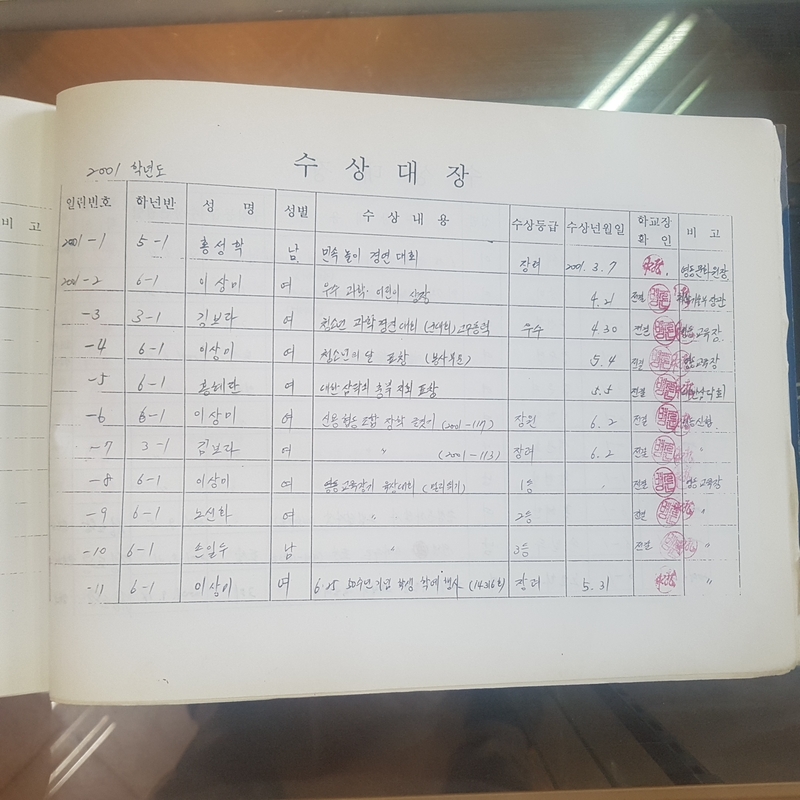 비 고
2001 학년도
수 상 대 장
일련번호 학년반 성 명 성별 수 상 내 용 수상등급 수상년월일 학교장 확 인 비 고
2001-1 5-1 홍성학 남 민속놀이 경연 대회 장려 2001. 3. 7
2001-2 6-1 이상미 여 우수 과학 어린이 상장 4. 21 전결
-3 3-1 김보라 여 청소년 과학 경연대회 우수 4. 30 전결 교육장
-4 6-1 이상미 여 청소년의 달 표창 (봉사부문) 5. 4 전결 교육장
-5 6-1 여 충북 지회 표창 5. 5 전결
-6 6-1 이상미 여 신용협동조합 장학 글짓기 (2001-117) 장원 6. 2 전결
-7 3-1 김보라 여 〃 (2001-113) 장려 6. 2 전결 〃
-8 6-1 이상미 여 영동교육장기 육상대회 (멀리뛰기) 1등 〃 전결 영동교육장
-9 6-1 노신화 여 〃 2등 전결 〃
-10 6-1 손일두 남 〃 3등 전결 〃
-11 6-1 이상미 여 6.25 50주년 기념 학생 학예행사 (14316호) 장려 5. 31 〃